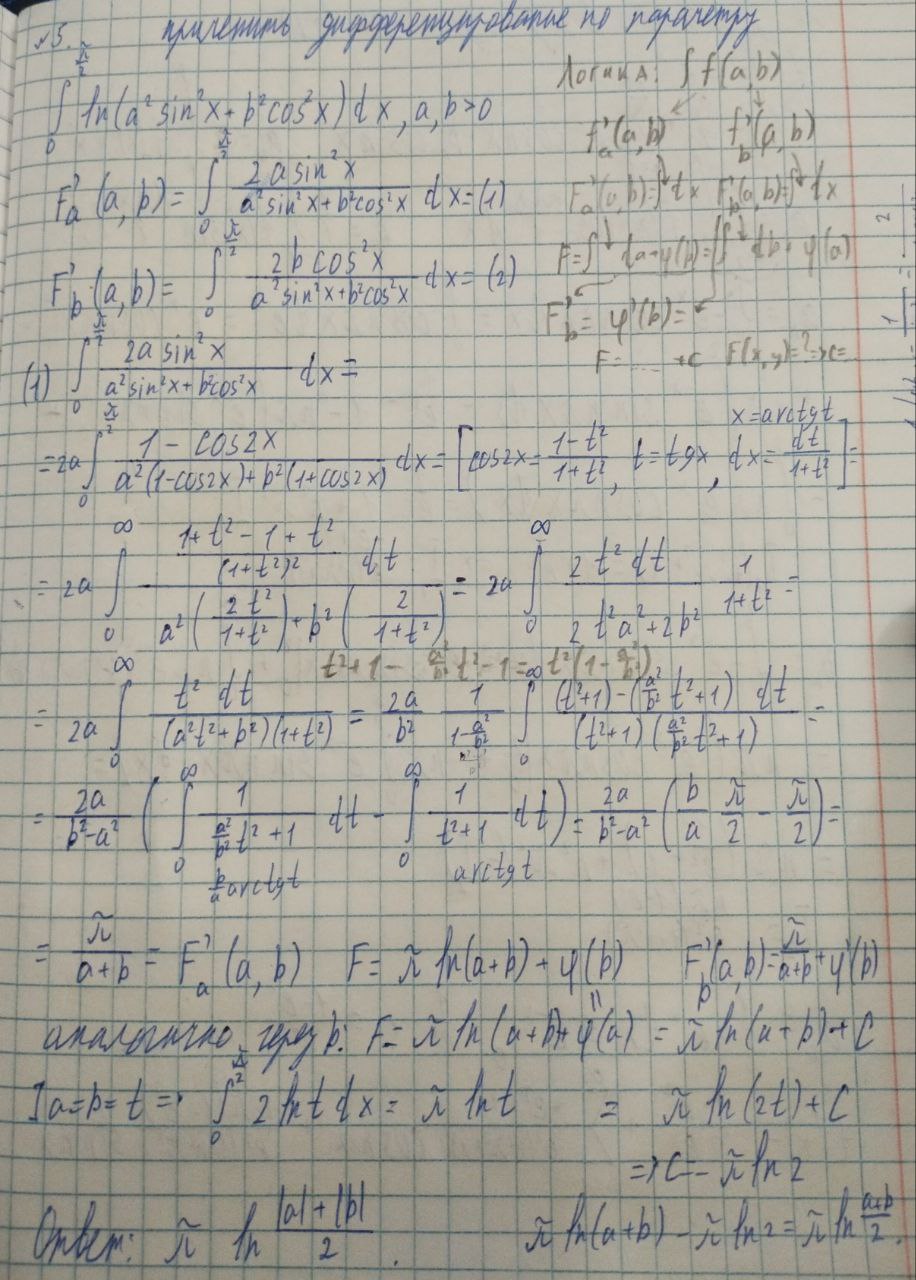 №5. применить дифференцирование по параметру
∫_0^{π/2} ln(a² sin²x + b² cos²x) dx, a, b > 0
Логика: ∫ f(a,b)
f'_a(a,b) f'_b(a,b)
F'_a(a,b) = ∫ dx F'_b(a,b) = ∫ dx
F = ∫ da + φ(b) = ∫ db + φ(a)
F'_b = φ'(b) =
F = ... + C F(x,y) = ? => C = ...
F'_a(a,b) = ∫_0^{π/2} 2a sin²x / (a² sin²x + b² cos²x) dx = (1)
F'_b(a,b) = ∫_0^{π/2} 2b cos²x / (a² sin²x + b² cos²x) dx = (2)
(1) ∫_0^{π/2} 2a sin²x / (a² sin²x + b² cos²x) dx =
= 2a ∫_0^{π/2} (1 - cos2x) / (a²(1-cos2x) + b²(1+cos2x)) dx = [cos2x = (1-t²)/(1+t²), t = tgx, x = arctgt, dx = dt/(1+t²)] =
= 2a ∫_0^∞ ((1+t²-1+t²)/(1+t²)²) dt / (a²(2t²/(1+t²)) + b²(2/(1+t²))) = 2a ∫_0^∞ 2t² dt / (2t²a² + 2b²) 1/(1+t²) =
t²+1 - a²/b² t² - 1 = t²(1 - a²/b²)
= 2a ∫_0^∞ t² dt / ((a²t²+b²)(1+t²)) = 2a/b² 1/(1 - a²/b²) ∫_0^∞ ((t²+1) - (a²/b² t²+1)) dt / ((t²+1)(a²/b² t²+1)) =
= 2a/(b²-a²) ( ∫_0^∞ 1/(a²/b² t²+1) dt - ∫_0^∞ 1/(t²+1) dt ) = 2a/(b²-a²) ( b/a π/2 - π/2 ) =
b/a arctgt arctgt
= π/(a+b) = F'_a(a,b) F = π ln(a+b) + φ(b) F'_b(a,b) = π/(a+b) + φ'(b)
аналогично через b: F = π ln(a+b) + φ(a) = π ln(a+b) + C
] a=b=t => ∫_0^{π/2} 2 ln t dx = π ln t = π ln(2t) + C
=> C = -π ln 2
Ответ: π ln (|a|+|b|)/2. π ln(a+b) - π ln 2 = π ln (a+b)/2.